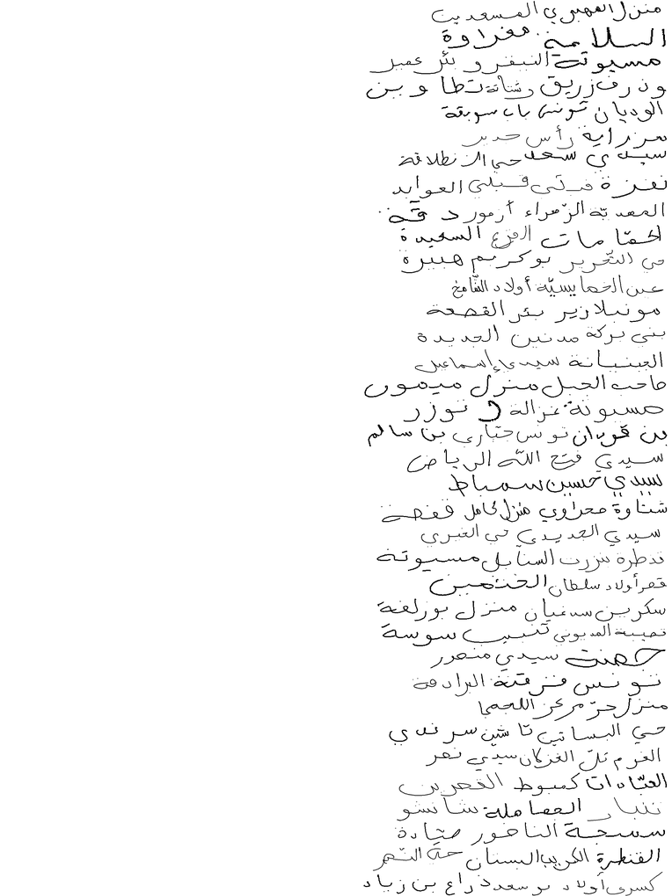 منزل الفهري المسعدين
السلامة مغراوة
مسيوتة النيفر و بئر عمير
وذرف زريق وشتانة تطاوين
الوديان تونس باب سويقة
مزراية رأس حدير
سيدي سعد حي الزنطلاقة
نفزة قبلي العوابد
المهدية الزهراء أرمور دقة
الحمامات القرع السعيدة
حي التحرير بوكريم هبيرة
عين الخمايسية أولاد الشامخ
مونبلازير بئر القصعة
بني بركة مدنين الجديدة
العينيانة سيدي إسماعيل
صاحب الجبل منزل ميمون
مسيوتة غزالة و توزر
بن قردان تونس جباري بن سالم
سيدي فتح الله الرياض
سيدي حسين سمباط
شناوة صحراوي منزل كامل قفصة
سيدي الجديدي حي الخيري
قنطرة بنزرت السنابل مسيوتة
قصر أولاد سلطان الخثمين
سكرين سفيان منزل بوزلفة
قصيبة المديوني تنبيب سوسة
حصنة سيدي منصور
تونس فرقتة البرادعة
منزل حر مركز اللجمي
حي البساتين تاشين سرندي
القرم تل الغزلان سيدي نصر
العبادات كمبوط القصرين
ننبار الفصاملة شانشو
سيسجة الناظور صيادة
القنطرة الكريب البستان حي التمر
كسرى أولاد بوسعد ذراع بن زياد